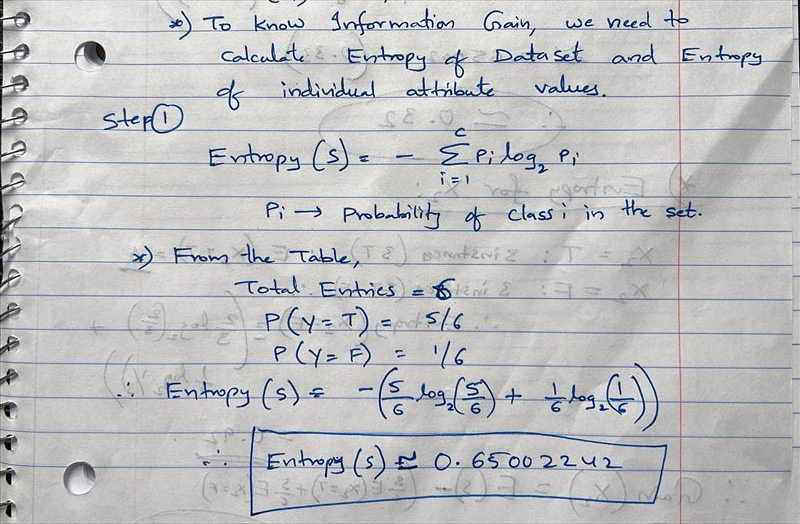 *) To know Information Gain, we need to
calculate Entropy of Dataset and Entropy
of individual attribute values.
Step ①
Entropy (S) = - ∑_{i=1}^{c} Pi log₂ Pi
Pi → Probability of class i in the set.
*) From the Table,
Total Entries = 6
P(Y=T) = 5/6
P(Y=F) = 1/6
∴ Entropy (S) = -(5/6 log₂(5/6) + 1/6 log₂(1/6))
∴ Entropy (S) ≈ 0.65002242